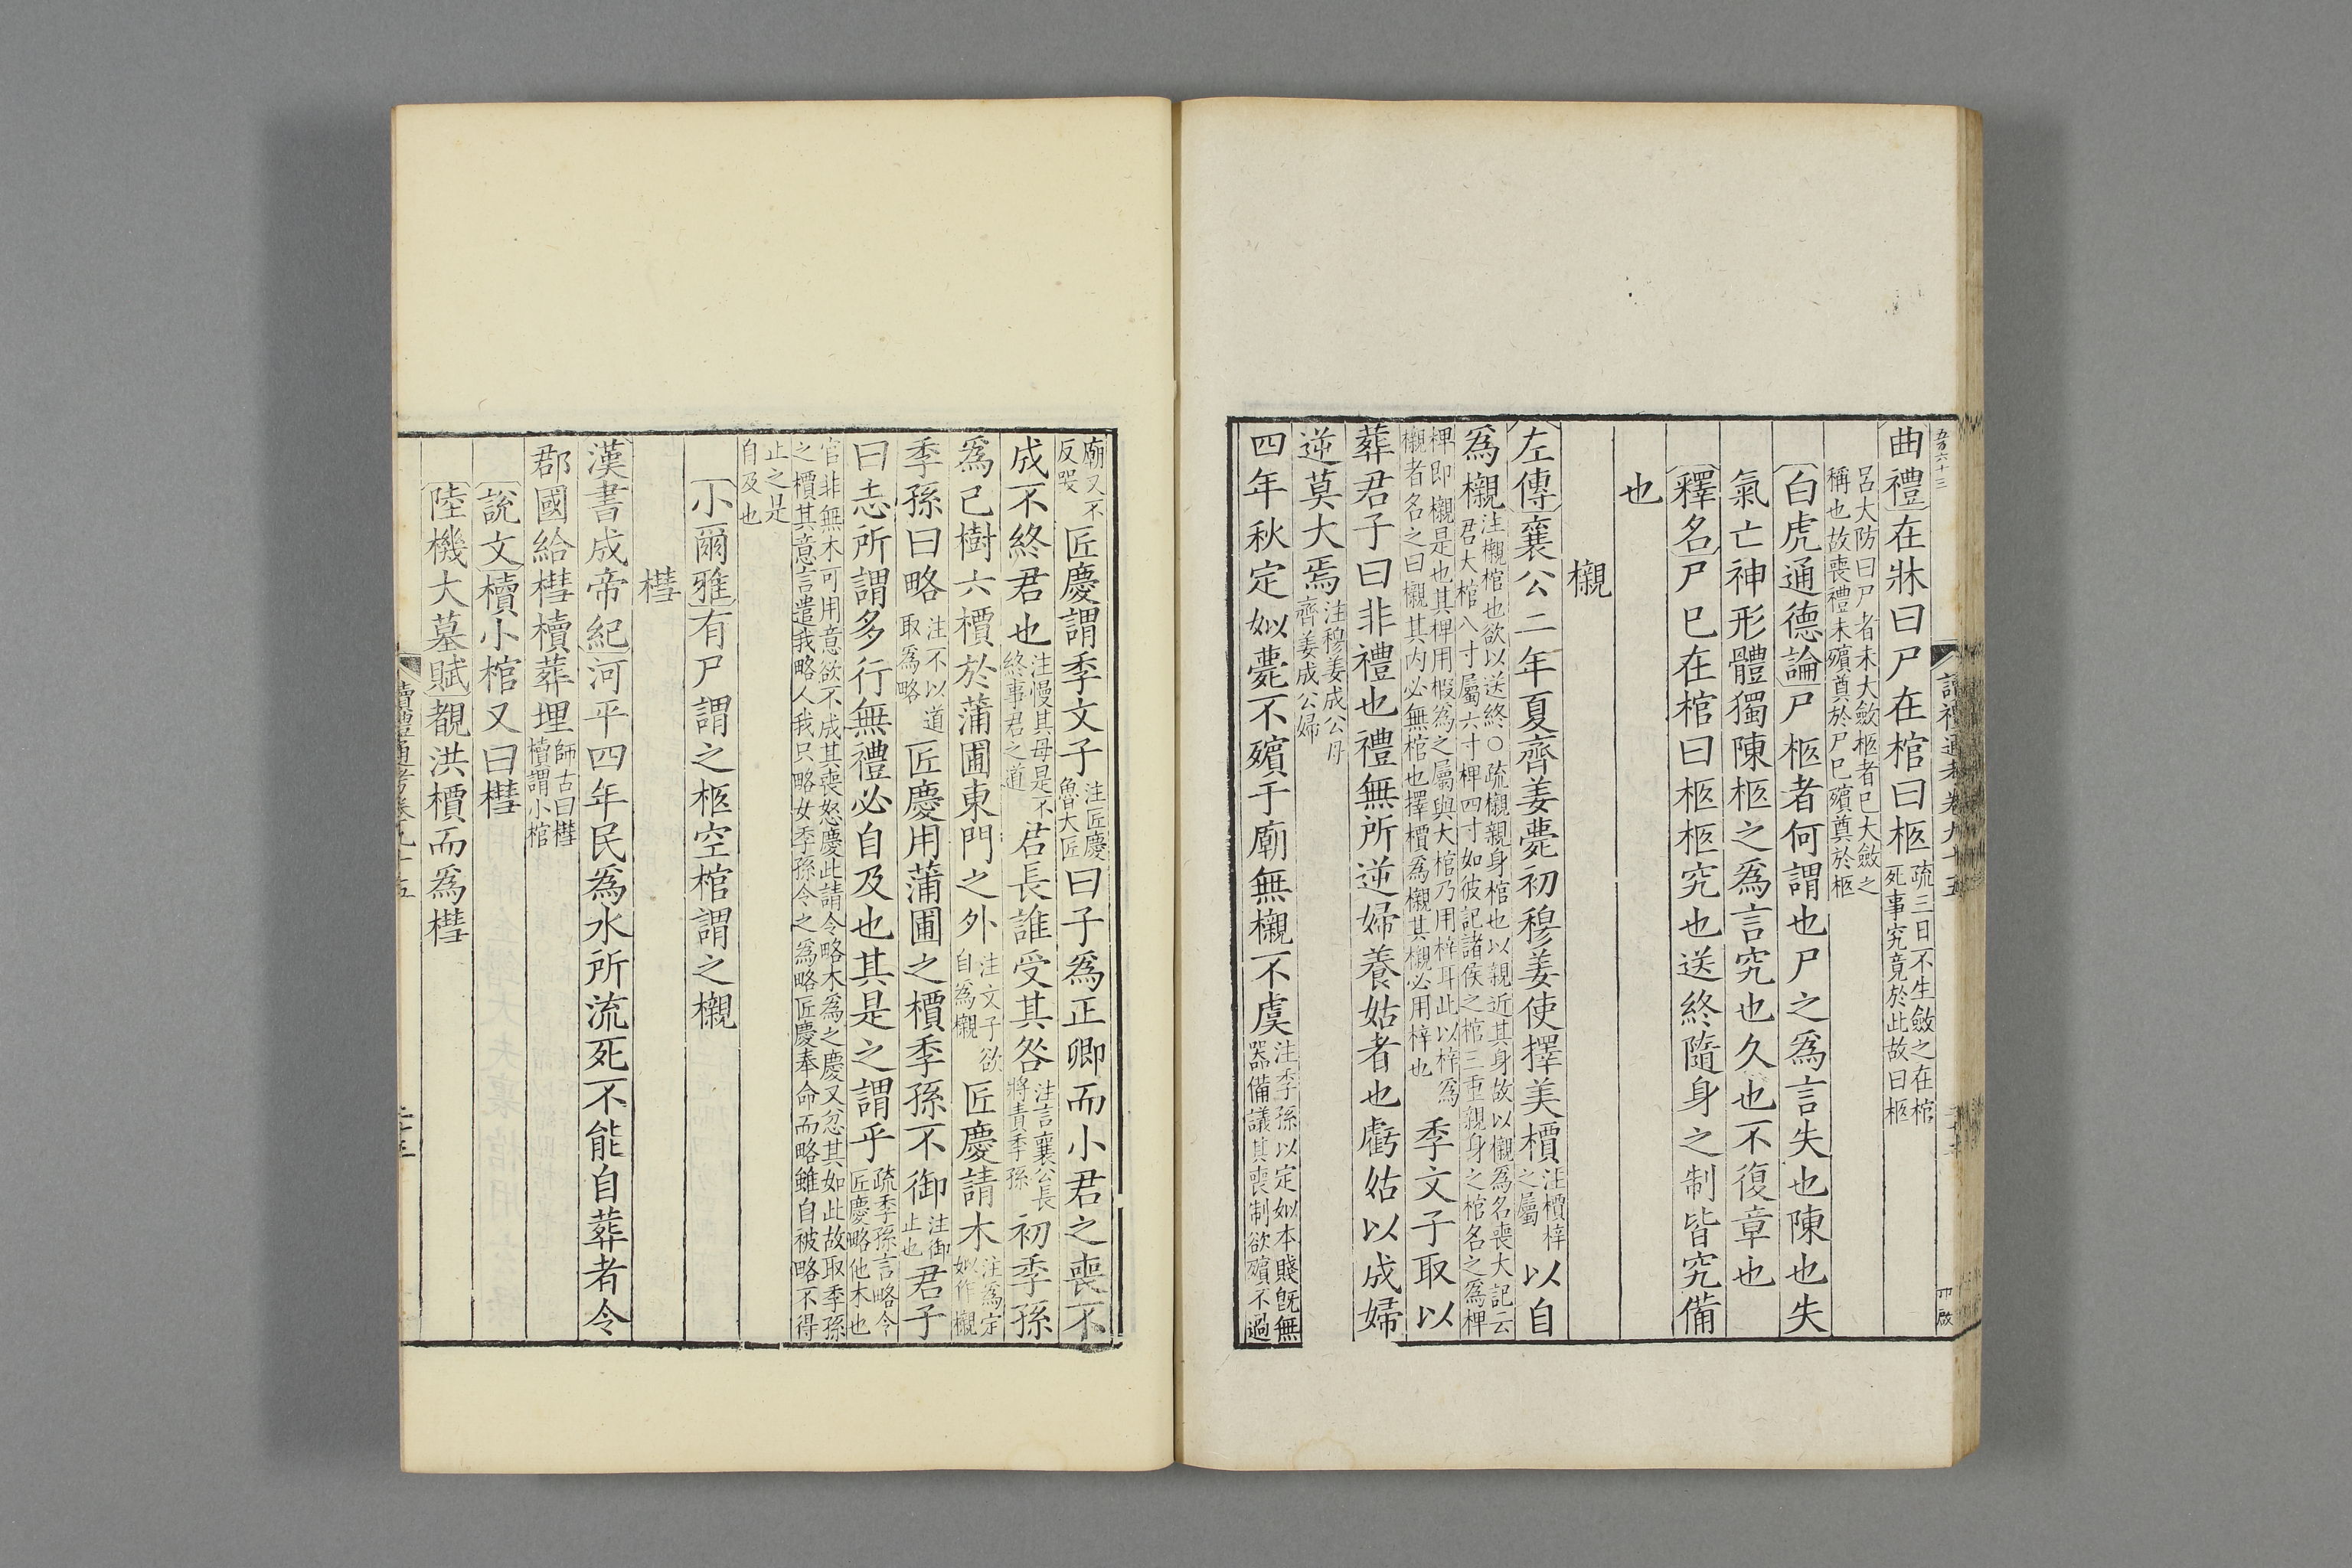 五百六十三
讀禮通考卷九十五
曲禮在牀曰尸在棺曰柩疏三日不生斂之在棺死事究竟於此故曰柩
呂大防曰尸者未大斂柩者已大斂之稱也故喪禮未殯奠於尸已殯奠於柩
白虎通德論尸柩者何謂也尸之爲言失也陳也失
氣亡神形體獨陳柩之爲言究也久也不復章也
釋名尸已在棺曰柩柩究也送終隨身之制皆究備
也
櫬
左傳襄公二年夏齊姜薨初穆姜使擇美檟注檟梓之屬以自
爲櫬注櫬棺也欲以送終○疏櫬親身棺也以親近其身故以櫬爲名喪大記云君大棺八寸屬六寸椑四寸如彼記諸侯之棺三重親身之棺名之爲椑
椑即櫬是也其椑用椵爲之屬與大棺乃用梓耳此以梓爲櫬者名之曰櫬其内必無棺也擇檟爲櫬其櫬必用梓也季文子取以
葬君子曰非禮也禮無所逆婦養姑者也虧姑以成婦
逆莫大焉注穆姜成公母齊姜成公婦
四年秋定姒薨不殯于廟無櫬不虞注季孫以定姒本賤既無器備議其喪制欲殯不過
廟又不反哭匠慶謂季文子注匠慶魯大匠曰子爲正卿而小君之喪不
成不終君也注慢其母是不終事君之道君長誰受其咎注言襄公長將責季孫初季孫
爲己樹六檟於蒲圃東門之外注文子欲自爲櫬匠慶請木注爲定姒作櫬
季孫曰略注不以道取爲略匠慶用蒲圃之檟季孫不御注御止也君子
曰志所謂多行無禮必自及也其是之謂乎疏季孫言略令匠慶略他木也
官非無木可用意欲不成其喪怒慶此請令略木爲之慶又忿其如此故取季孫之檟其意言遣我略人我只略女季孫令之爲略匠慶奉命而略雖自被略不得
止之是自及也
小爾雅有尸謂之柩空棺謂之櫬
槥
漢書成帝紀河平四年民爲水所流死不能自葬者令
郡國給槥櫝葬埋師古曰槥櫝謂小棺
說文櫝小棺又曰槥
陸機大墓賦覩洪檟而爲槥
讀禮通考卷九十五